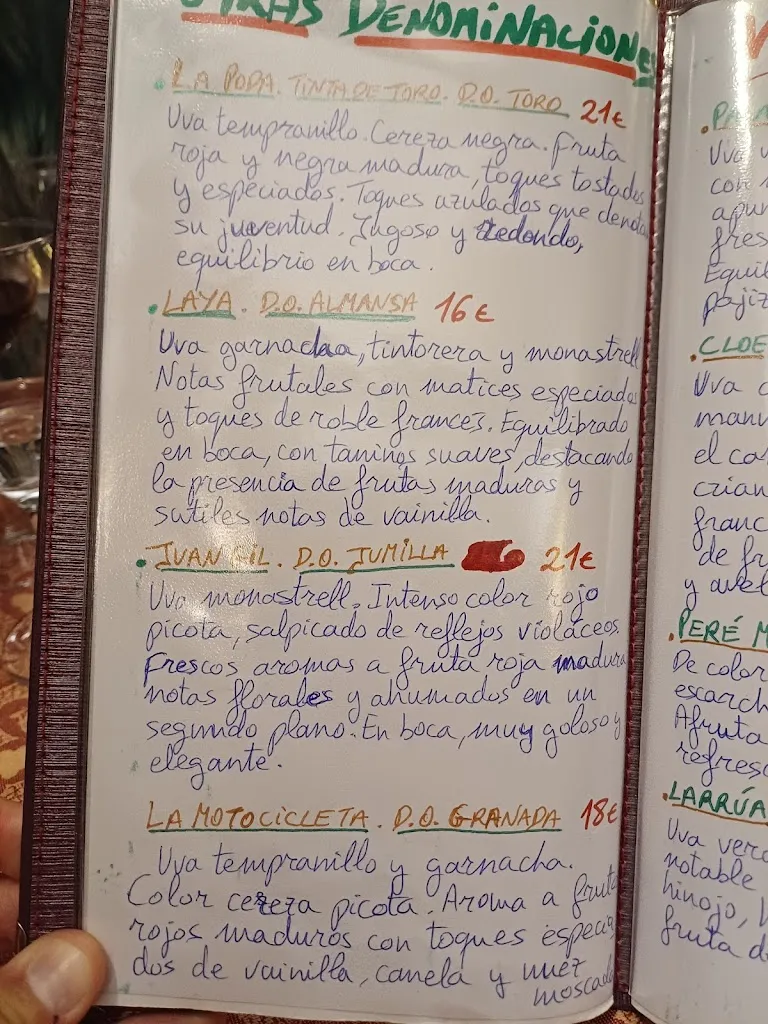 OTRAS DENOMINACIONES
. LA PODA. TINTA DE TORO. D.O. TORO 21€
Uva tempranillo. Cereza negra. Fruta
roja y negra madura, toques tostados
y especiados. Toques azulados que denota
su juventud. Jugoso y redondo,
equilibrio en boca.
. LAYA. D.O. ALMANSA 16€
Uva garnacha, tintorera y monastrell
Notas frutales con matices especiados
y toques de roble francés. Equilibrado
en boca, con taninos suaves, destacando
la presencia de frutas maduras y
sutiles notas de vainilla.
. JUAN GIL. D.O. JUMILLA 21€
Uva monastrell. Intenso color rojo
picota, salpicado de reflejos violáceos.
Frescos aromas a fruta roja madura
notas florales y ahumados en un
segundo plano. En boca, muy goloso y
elegante.
LA MOTOCICLETA. D.O. GRANADA 18€
Uva tempranillo y garnacha.
Color cereza picota. Aroma a fruta
rojos maduros con toques especia
dos de vainilla, canela y nuez
moscada
Uva
con
fres
Equil
pajiz
. CLOE
Uva
manu
el ca
crian
franc
de fr
y avel
. PERÉ M
De color
escarch
Afruta
refresc
. LARRÚA
Uva verd
notable
hinojo,
fruta d